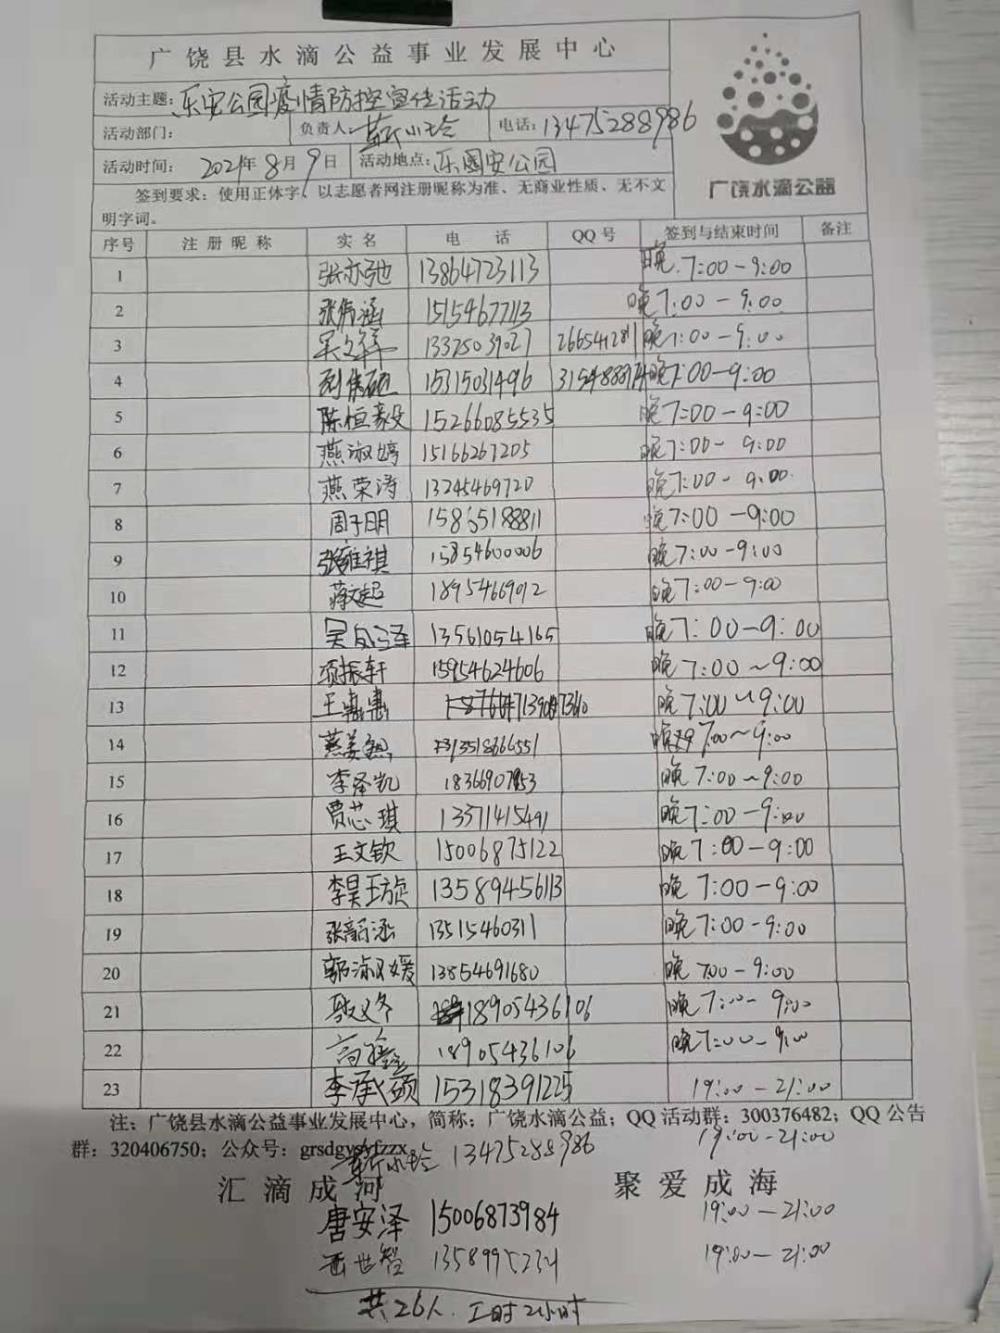 广饶县水滴公益事业发展中心
广饶水滴公益
活动主题：乐安公园疫情防控宣传活动
活动部门： 负责人： 电话：13475288986
活动时间： 2021年8月9日 活动地点：乐安公园
签到要求：使用正体字、以志愿者网注册昵称为准、无商业性质、无不文
明字词。
序号 注册昵称 实名 电话 QQ号 签到与结束时间 备注
1 张亦弛 13864723113 晚7:00-9:00
2 15154677113 晚7:00-9:00
3 13325039027 晚7:00-9:00
4 15315031496 晚7:00-9:00
5 陈恒毅 15266085535 晚7:00-9:00
6 燕淑婷 15166267205 晚7:00-9:00
7 燕荣涛 13245469720 晚7:00-9:00
8 周子明 15865188811 晚7:00-9:00
9 张雍祺 15854600006 晚7:00-9:00
10 蒋文超 18954669012 晚7:00-9:00
11 13561054165 晚7:00-9:00
12 项振轩 15954624606 晚7:00~9:00
13 晚7:00~9:00
14 晚7:00~9:00
15 李泽凯 晚7:00~9:00
16 贾芯琪 晚7:00-9:00
17 王文钦 15006875122 晚7:00-9:00
18 13589456113 晚7:00-9:00
19 张韵涵 13515460311 晚7:00-9:00
20 郭淑媛 13854691680 晚7:00-9:00
21 18905436106 晚7:00-9:00
22 18905436106 晚7:00-9:00
23 李承硕 15318391225 19:00-21:00
注：广饶县水滴公益事业发展中心，简称：广饶水滴公益；QQ活动群：300376482；QQ公告
群：320406750；公众号：
13475288986 19:00-21:00
汇滴成河 聚爱成海
唐安泽 15006873984 19:00-21:00
19:00-21:00
共26人. 工时2小时